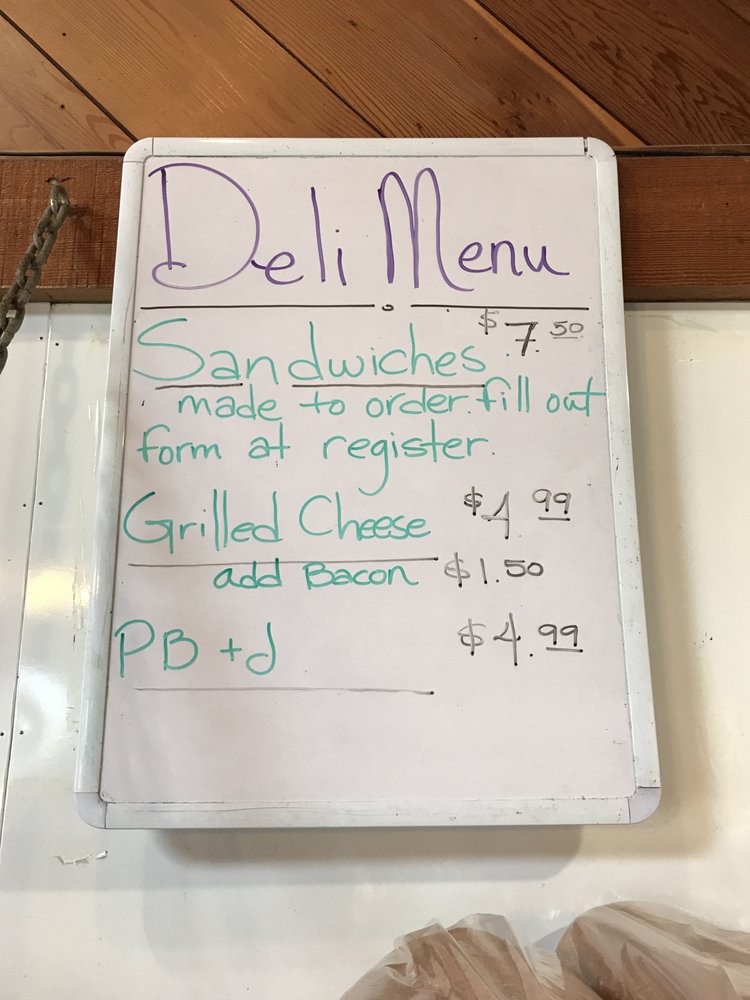 Deli Menu
Sandwiches $7.50
made to order. fill out
form at register.
Grilled Cheese $4.99
add Bacon $1.50
PB + J $4.99